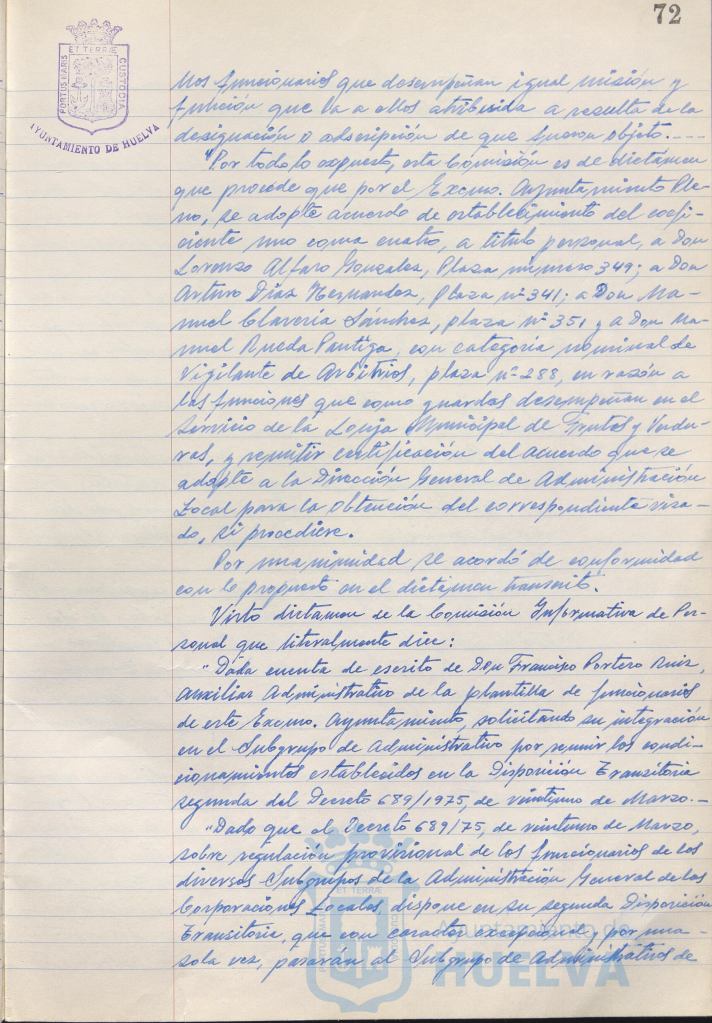 72
PORTUS MARIS ET TERRAE CUSTODIA
AYUNTAMIENTO DE HUELVA
llos funcionarios que desempeñan igual misión y
función que la a ellos atribuida a resulta de la
designación o adscripción de que fueron objeto. ----
"Por todo lo expuesto, esta Comisión es de dictámen
que procede que por el Excmo. Ayuntamiento Ple-
no, se adopte acuerdo de establecimiento del coefi-
ciente uno coma cuatro, a titulo personal, a Don
Lorenzo Alfaro Gonzalez, Plaza número 349; a Don
Arturo Díaz Hernandez, Plaza nº 341; a Don Ma-
nuel Clavería Sánchez, plaza nº 351 y a Don Ma-
nuel Rueda Pantiga, con categoría nominal de
Vigilante de Arbitrios, plaza nº 288, en razón a
las funciones que como guardas desempeñan en el
Servicio de la Lonja Municipal de Frutas y Verdu-
ras, y remitir certificación del acuerdo que se
adopte a la Dirección General de Administración
Local para la obtención del correspondiente visa-
do, si procediere.
Por unanimidad se acordó de conformidad
con lo propuesto en el dictámen transcrito.
Visto dictamen de la Comisión Informativa de Per-
sonal que literalmente dice:
"Dada cuenta de escrito de Don Francisco Portero Ruiz,
Auxiliar Administrativo de la plantilla de funcionarios
de este Excmo. Ayuntamiento, solicitando su integración
en el Subgrupo de Administrativo por reunir los condi-
cionamientos establecidos en la Disposición Transitoria
segunda del Decreto 689/1975, de veintiuno de Marzo. -
"Dado que el Decreto 689/75, de veintiuno de Marzo,
sobre regulación provisional de los funcionarios de los
diversos Subgrupos de la Administración General de las
Corporaciones Locales, dispone en su segunda Disposición
Transitoria, que con caracter excepcional y por una
sola vez, pasarán al Subgrupo de Administrativos de
PORTUS MARIS ET TERRAE CUSTODIA
Ayuntamiento de
HUELVA